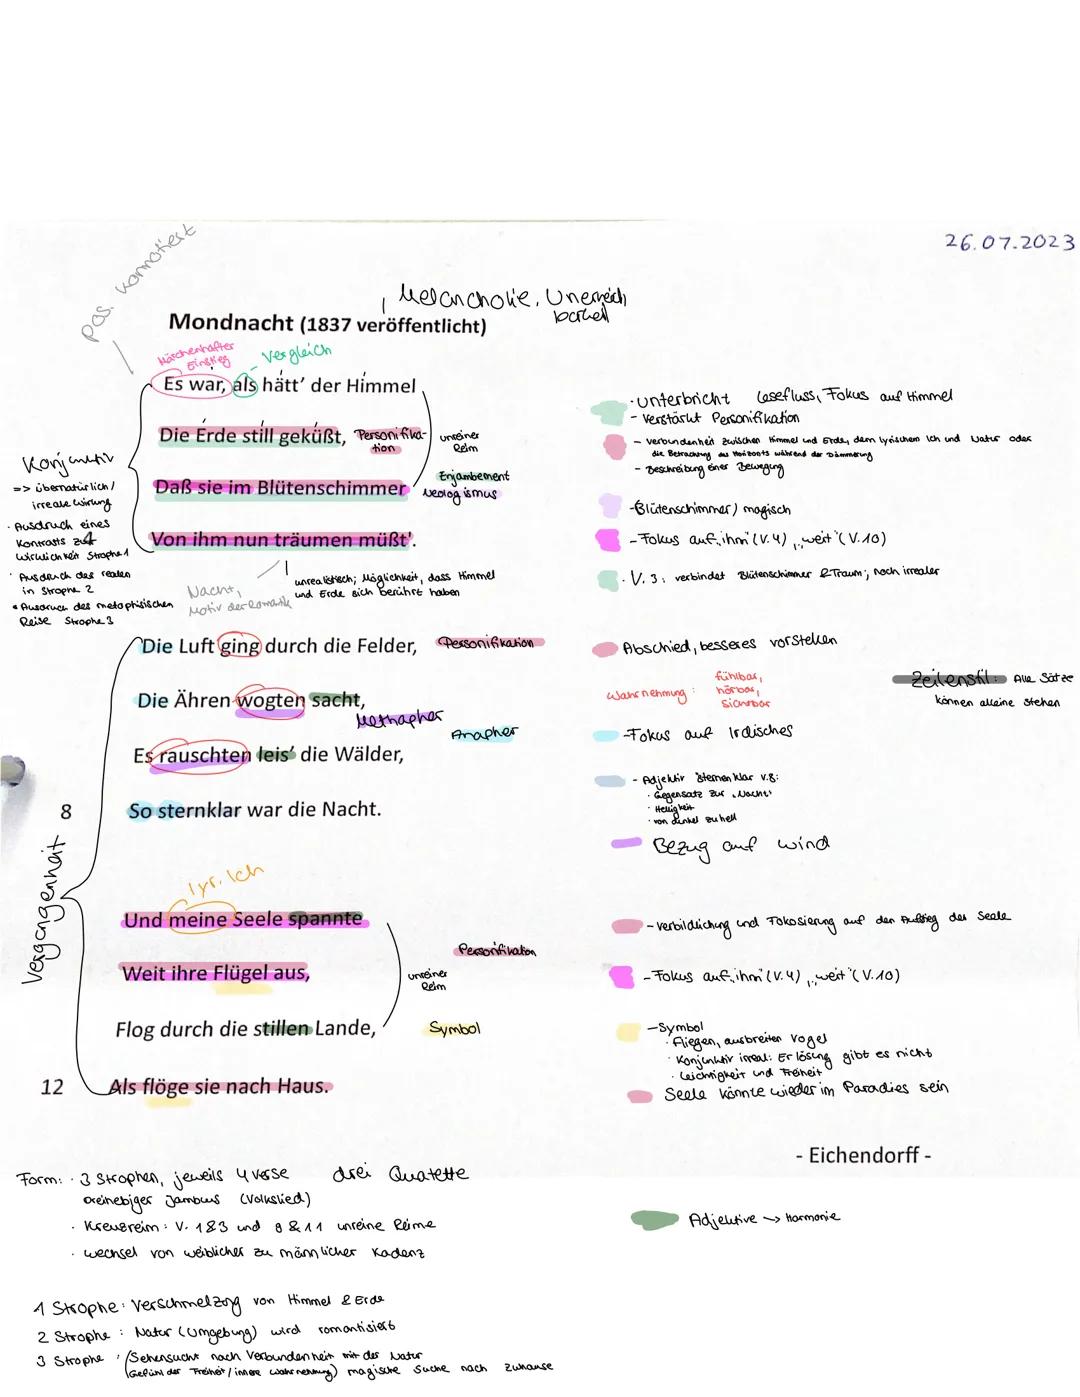 26.07.2023
pos. konnotiert
Melancholie, Unerreich
barkeit
Mondnacht (1837 veröffentlicht)
Märchenhafter
Einstieg
Vergleich
Es war, als hätt' der Himmel
Die Erde still geküßt,
Personifika-
tion
unreiner
Reim
Daß sie im Blütenschimmer
Enjambement
Neologismus
Von ihm nun träumen müßt'.
Konjunktiv
=> übernatürlich/
irreale Wirkung
· Ausdruck eines
Kontrasts zur
Wirklichkeit Strophe 1
· Ausdruck des realen
in Strophe 2
• Ausdruck des metaphisischen
Reise Strophe 3
Nacht,
Motiv der Romantik
unrealistisch; Möglichkeit, dass Himmel
und Erde sich berührt haben
· unterbricht Lesefluss, Fokus auf Himmel
- verstärkt Personifikation
- Verbundenheit zwischen Himmel und Erde, dem lyrischem Ich und Natur oder
die Betrachtung des Horizonts während der Dämmerung
- Beschreibung einer Bewegung
- (Blütenschimmer) magisch
- Fokus auf „ihm" (V.4) „weit" (V.10)
· V. 3: verbindet Blütenschimmer & Traum; noch irrealer
Die Luft ging durch die Felder,
Personifikation
Die Ähren wogten sacht,
Methapher
Anapher
Es rauschten leis' die Wälder,
8
So sternklar war die Nacht.
Abschied, besseres vorstellen
Wahrnehmung:
fühlbar,
hörbar,
sichtbar
Zeilenstil: Alle Sätze
können alleine stehen
- Fokus auf Irdisches
- Adjektiv sternenklar V.8:
· Gegensatz zur „Nacht"
· Helligkeit
· von dunkel zu hell
Bezug auf Wind
Vergangenheit
lyr. Ich
Und meine Seele spannte
Weit ihre Flügel aus,
Personifikation
unreiner
Reim
Flog durch die stillen Lande,
Symbol
12
Als flöge sie nach Haus.
- Verbildlichung und Fokosierung auf den Aufstieg der Seele
- Fokus auf „ihm" (V.4) „weit" (V.10)
- Symbol
· Fliegen, ausbreiten Vogel
· Konjunktiv irreal: Erlösung gibt es nicht
· Leichtigkeit und Freiheit
Seele könnte wieder im Paradies sein
- Eichendorff -
Adjektive -> Harmonie
Form: · 3 Strophen, jeweils 4 Verse drei Quatette
Dreihebiger Jambus (Volkslied)
· Kreuzreim: V. 1&3 und 9&11 unreine Reime
· wechsel von weiblicher zu männlicher Kadenz
1 Strophe: Verschmelzung von Himmel & Erde
2 Strophe: Natur (Umgebung) wird romantisiert
3 Strophe: (Sehensucht nach Verbundenheit mit der Natur
(Gefühl der Freiheit / innere Wahrnehmung) magische Suche nach Zuhause